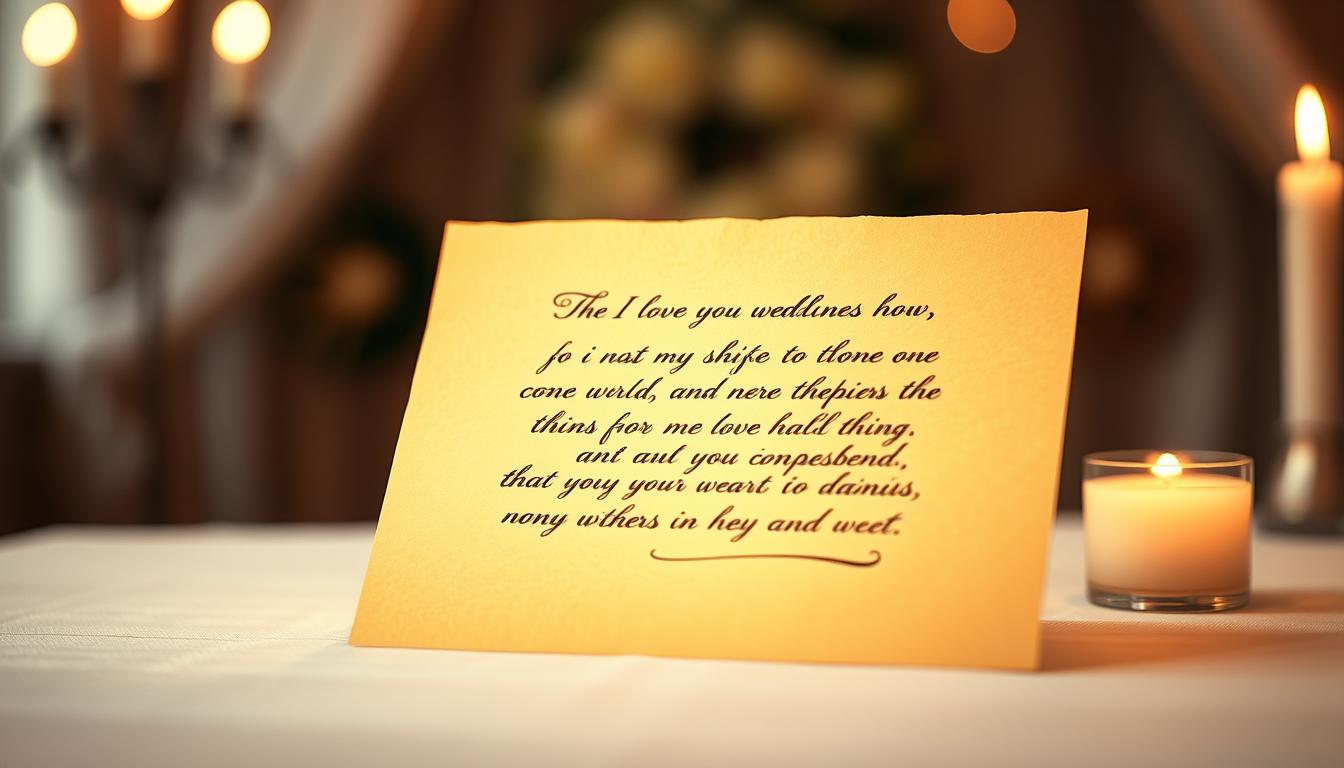 The I love you weddlnes how,
fo i nat my shifte to tlone one
cone wrld, and nere thepiers the
thins foor me love hald thing.
ant aul you conpesbend.,
that yoy your weart io dainiis,
nony wthers in hey and weet.